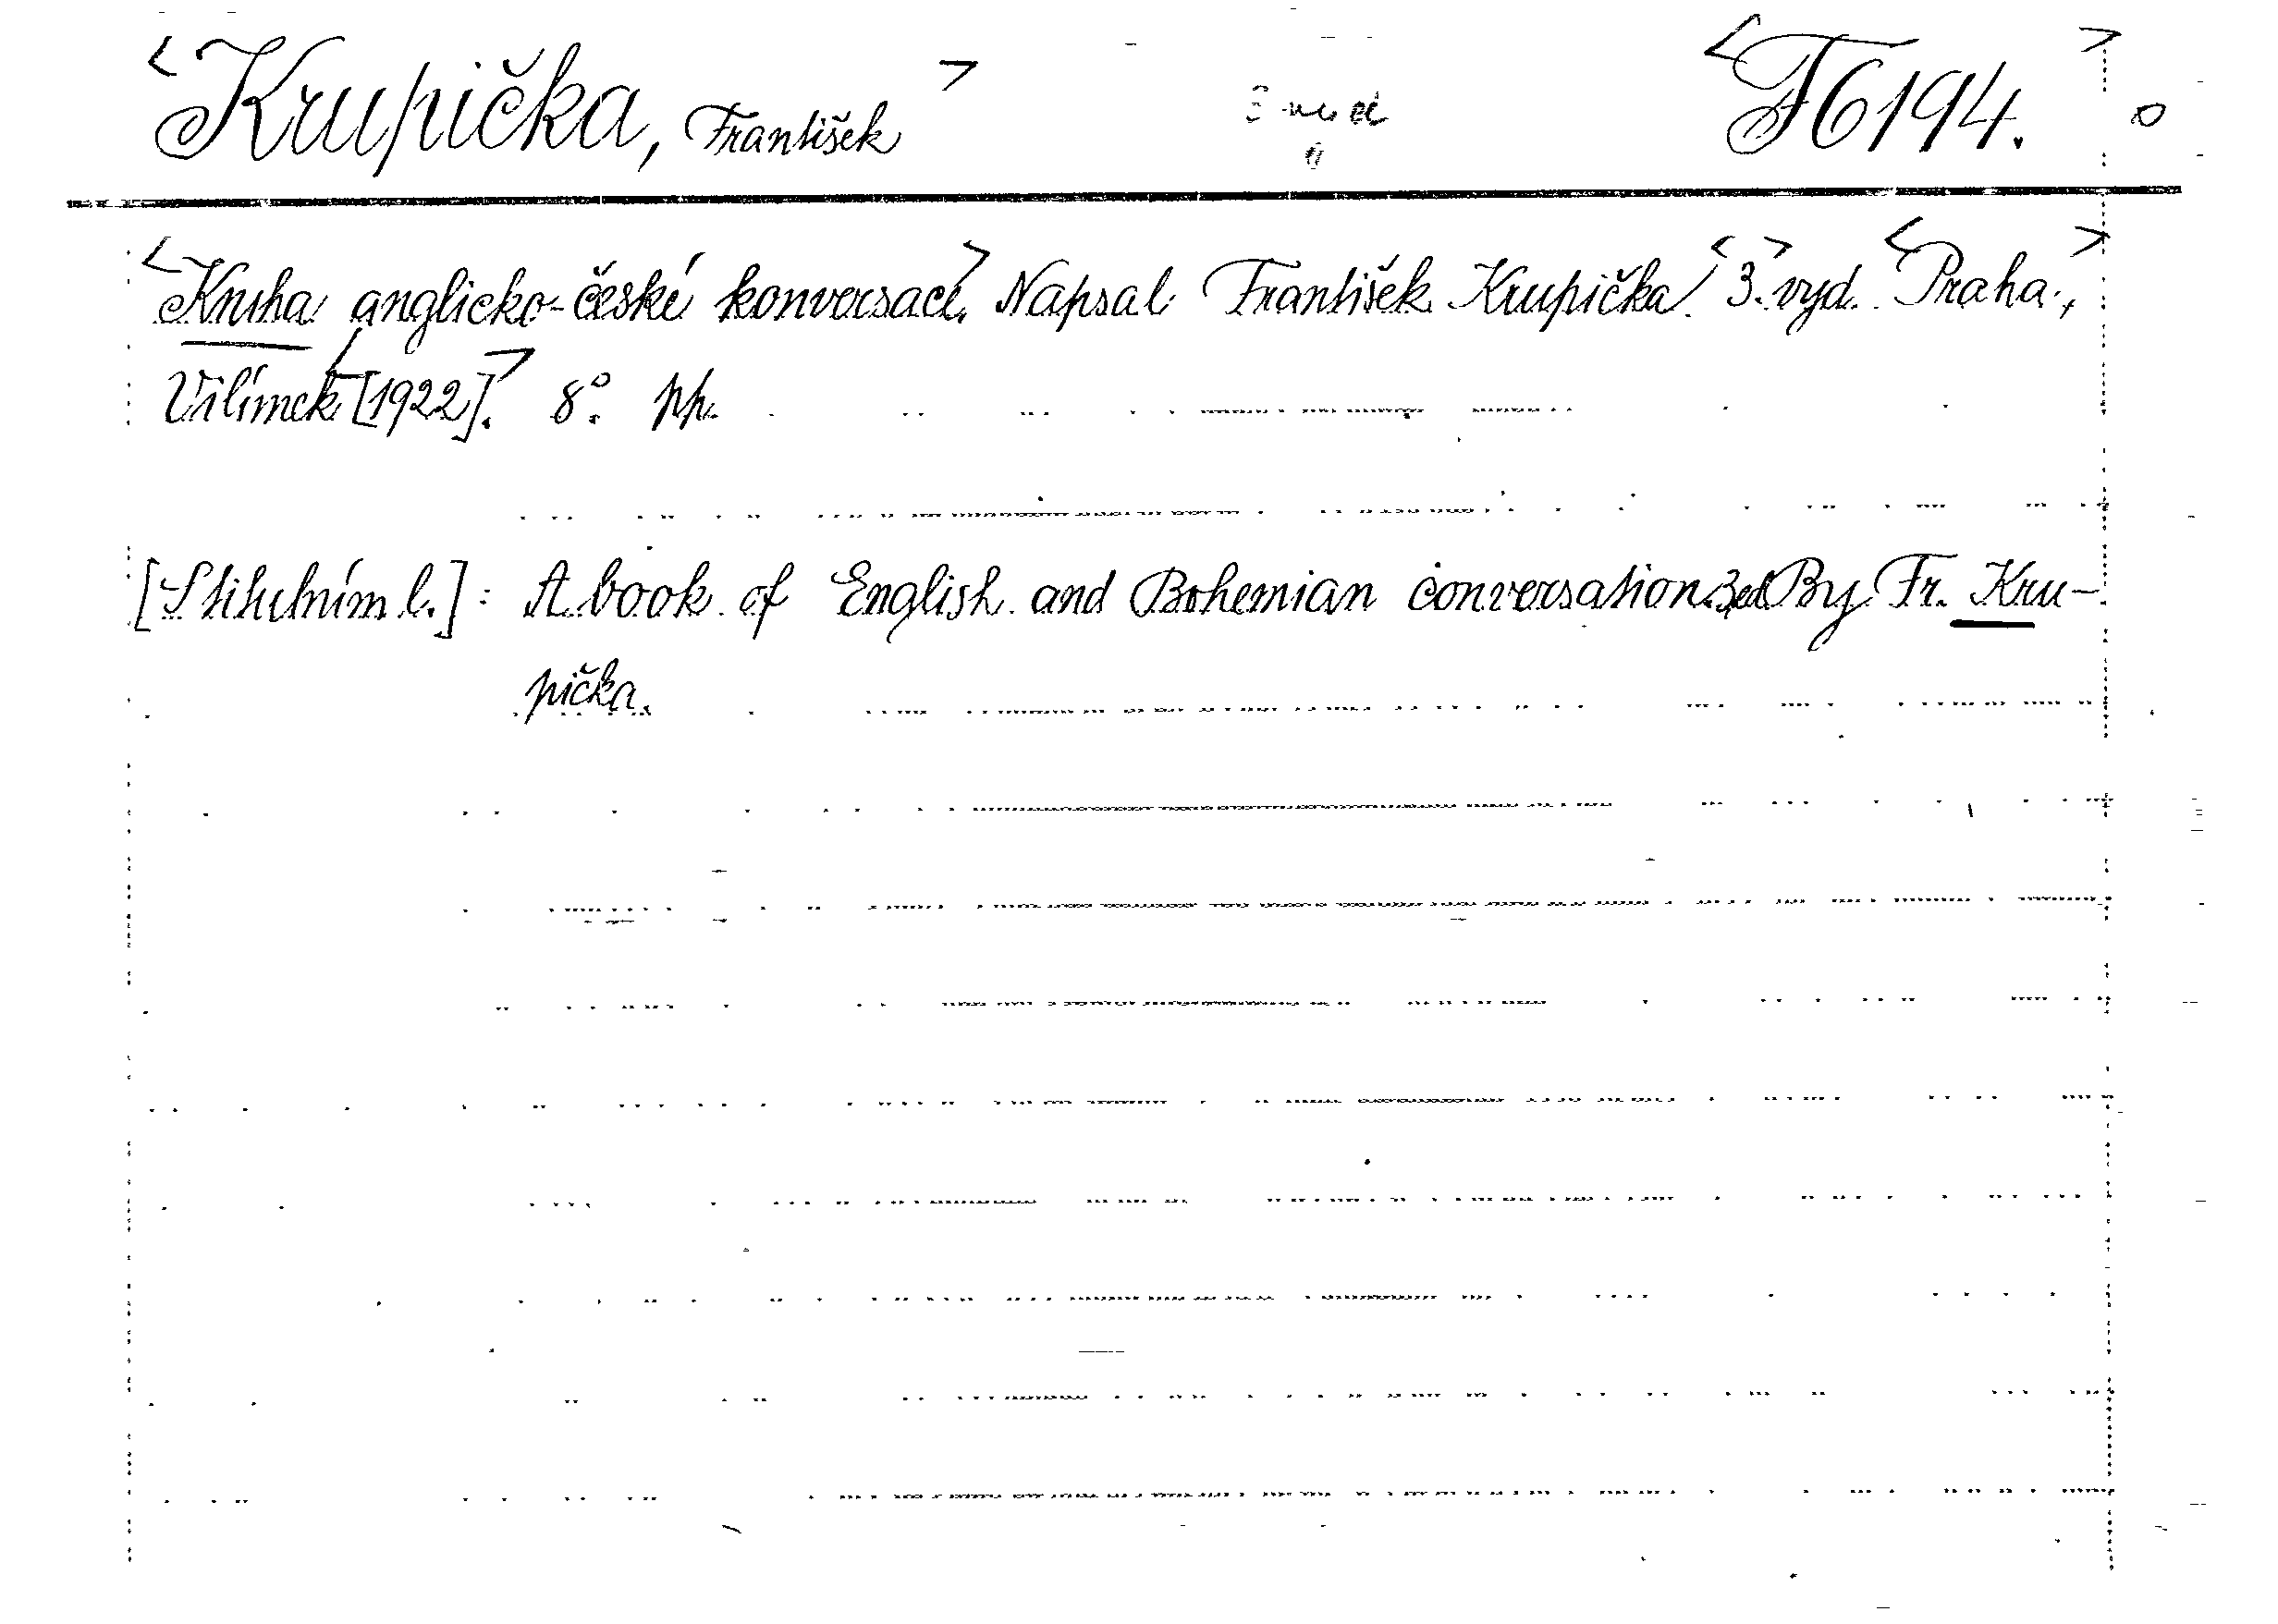 <Krupička, František> <F6194.>
<Kniha anglicko-české konversace.> Napsal František Krupička. <3.> vyd. <Praha,>
Vilímek <[1922].> 8°. pp.
[S titulním l.]: A book of English and Bohemian conversation. 3.ed By Fr. Kru-
pička.